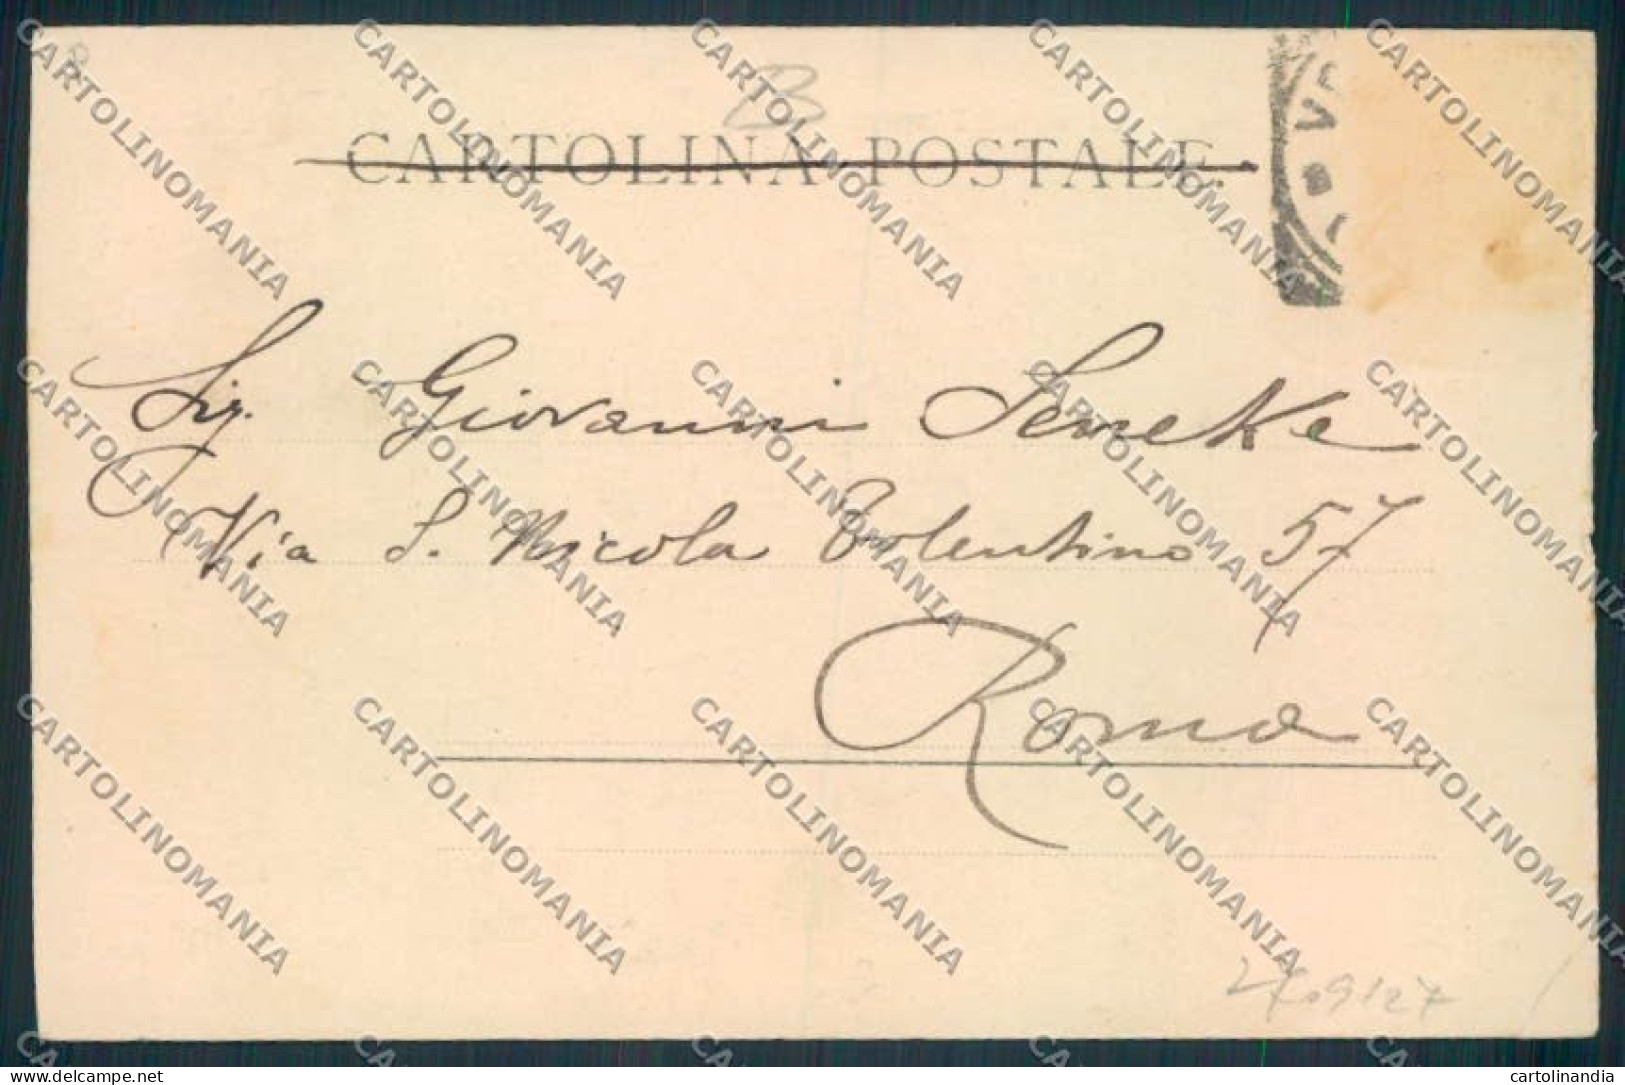 CARTOLINA POSTALE
Sig. Giovanni
Via S. Nicola Tolentino 57
Roma
CARTOLINOMANIA
delcampe.net
cartolinandia